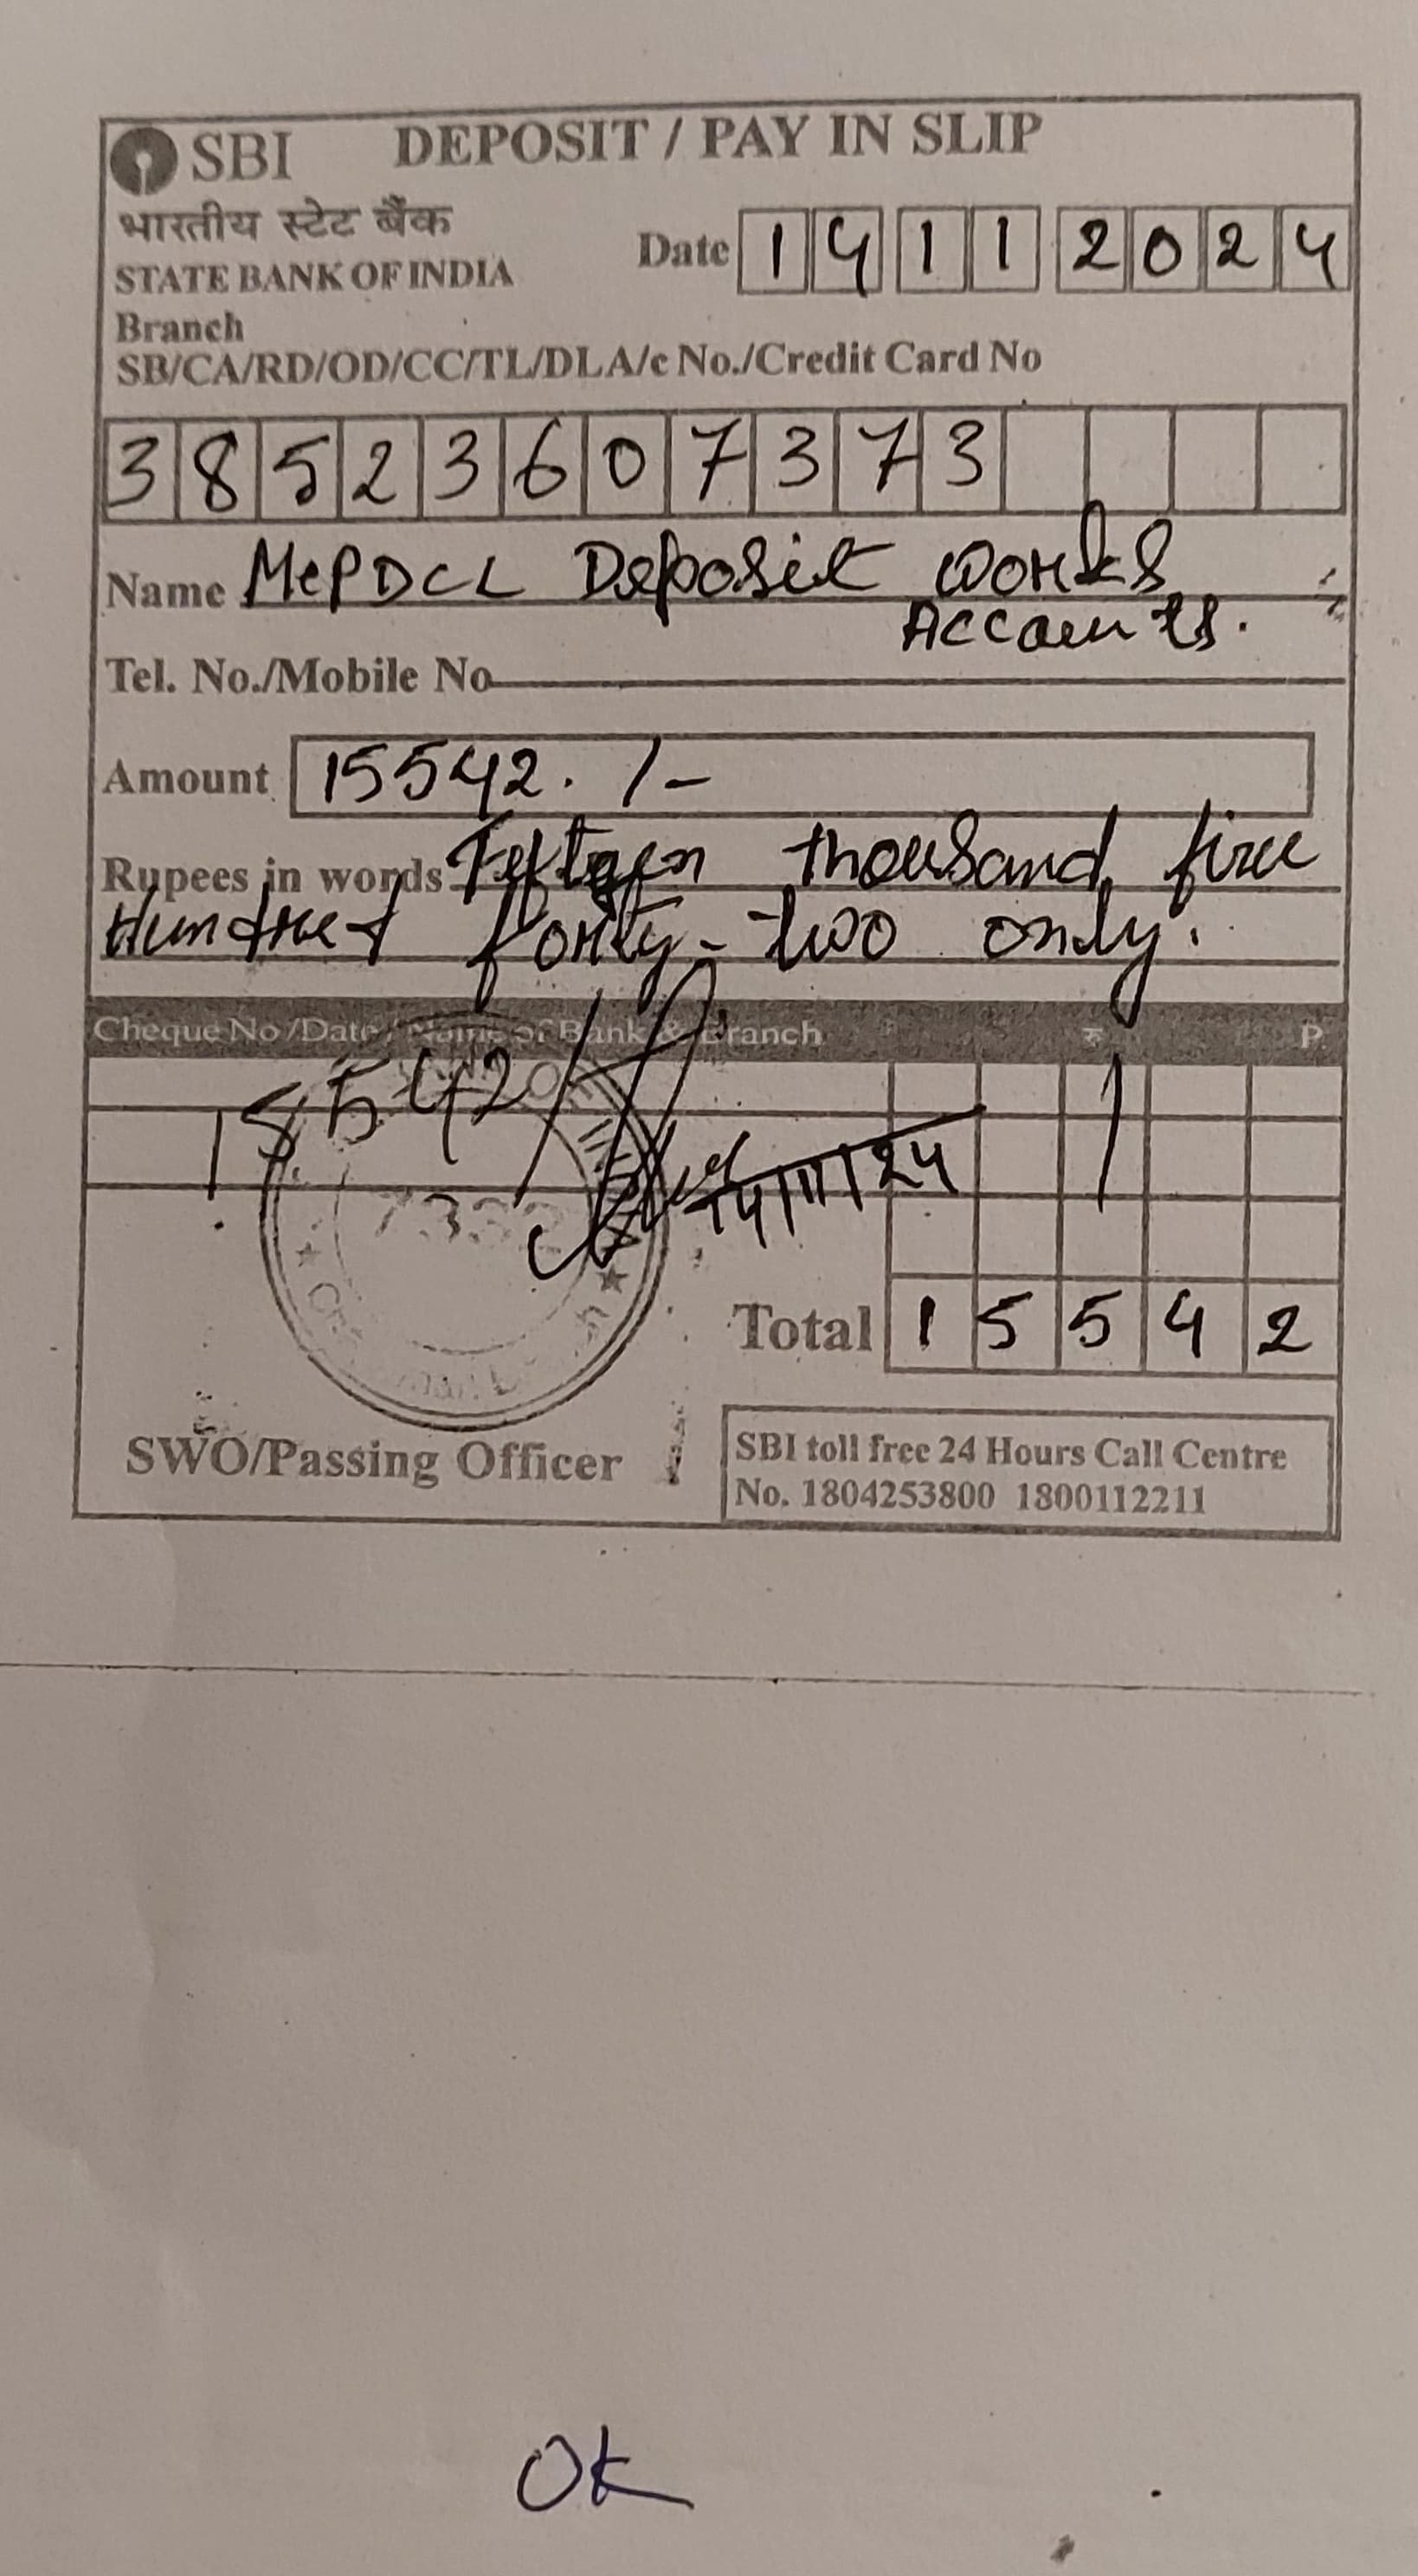 SBI DEPOSIT / PAY IN SLIP
भारतीय स्टेट बैंक
STATE BANK OF INDIA
Date 14 11 2024
Branch
SB/CA/RD/OD/CC/TL/DLA/c No./Credit Card No
38523607373
Name MePDCL Deposit works
Accounts.
Tel. No./Mobile No
Amount 15542. /-
Rupees in words Fifteen thousand five
Hundred forty-two only.
Cheque No /Date / Name of Bank & Branch रु P.
15542/
14/11/24
7332
Total 15542
SWO/Passing Officer
SBI toll free 24 Hours Call Centre
No. 1804253800 1800112211
OK